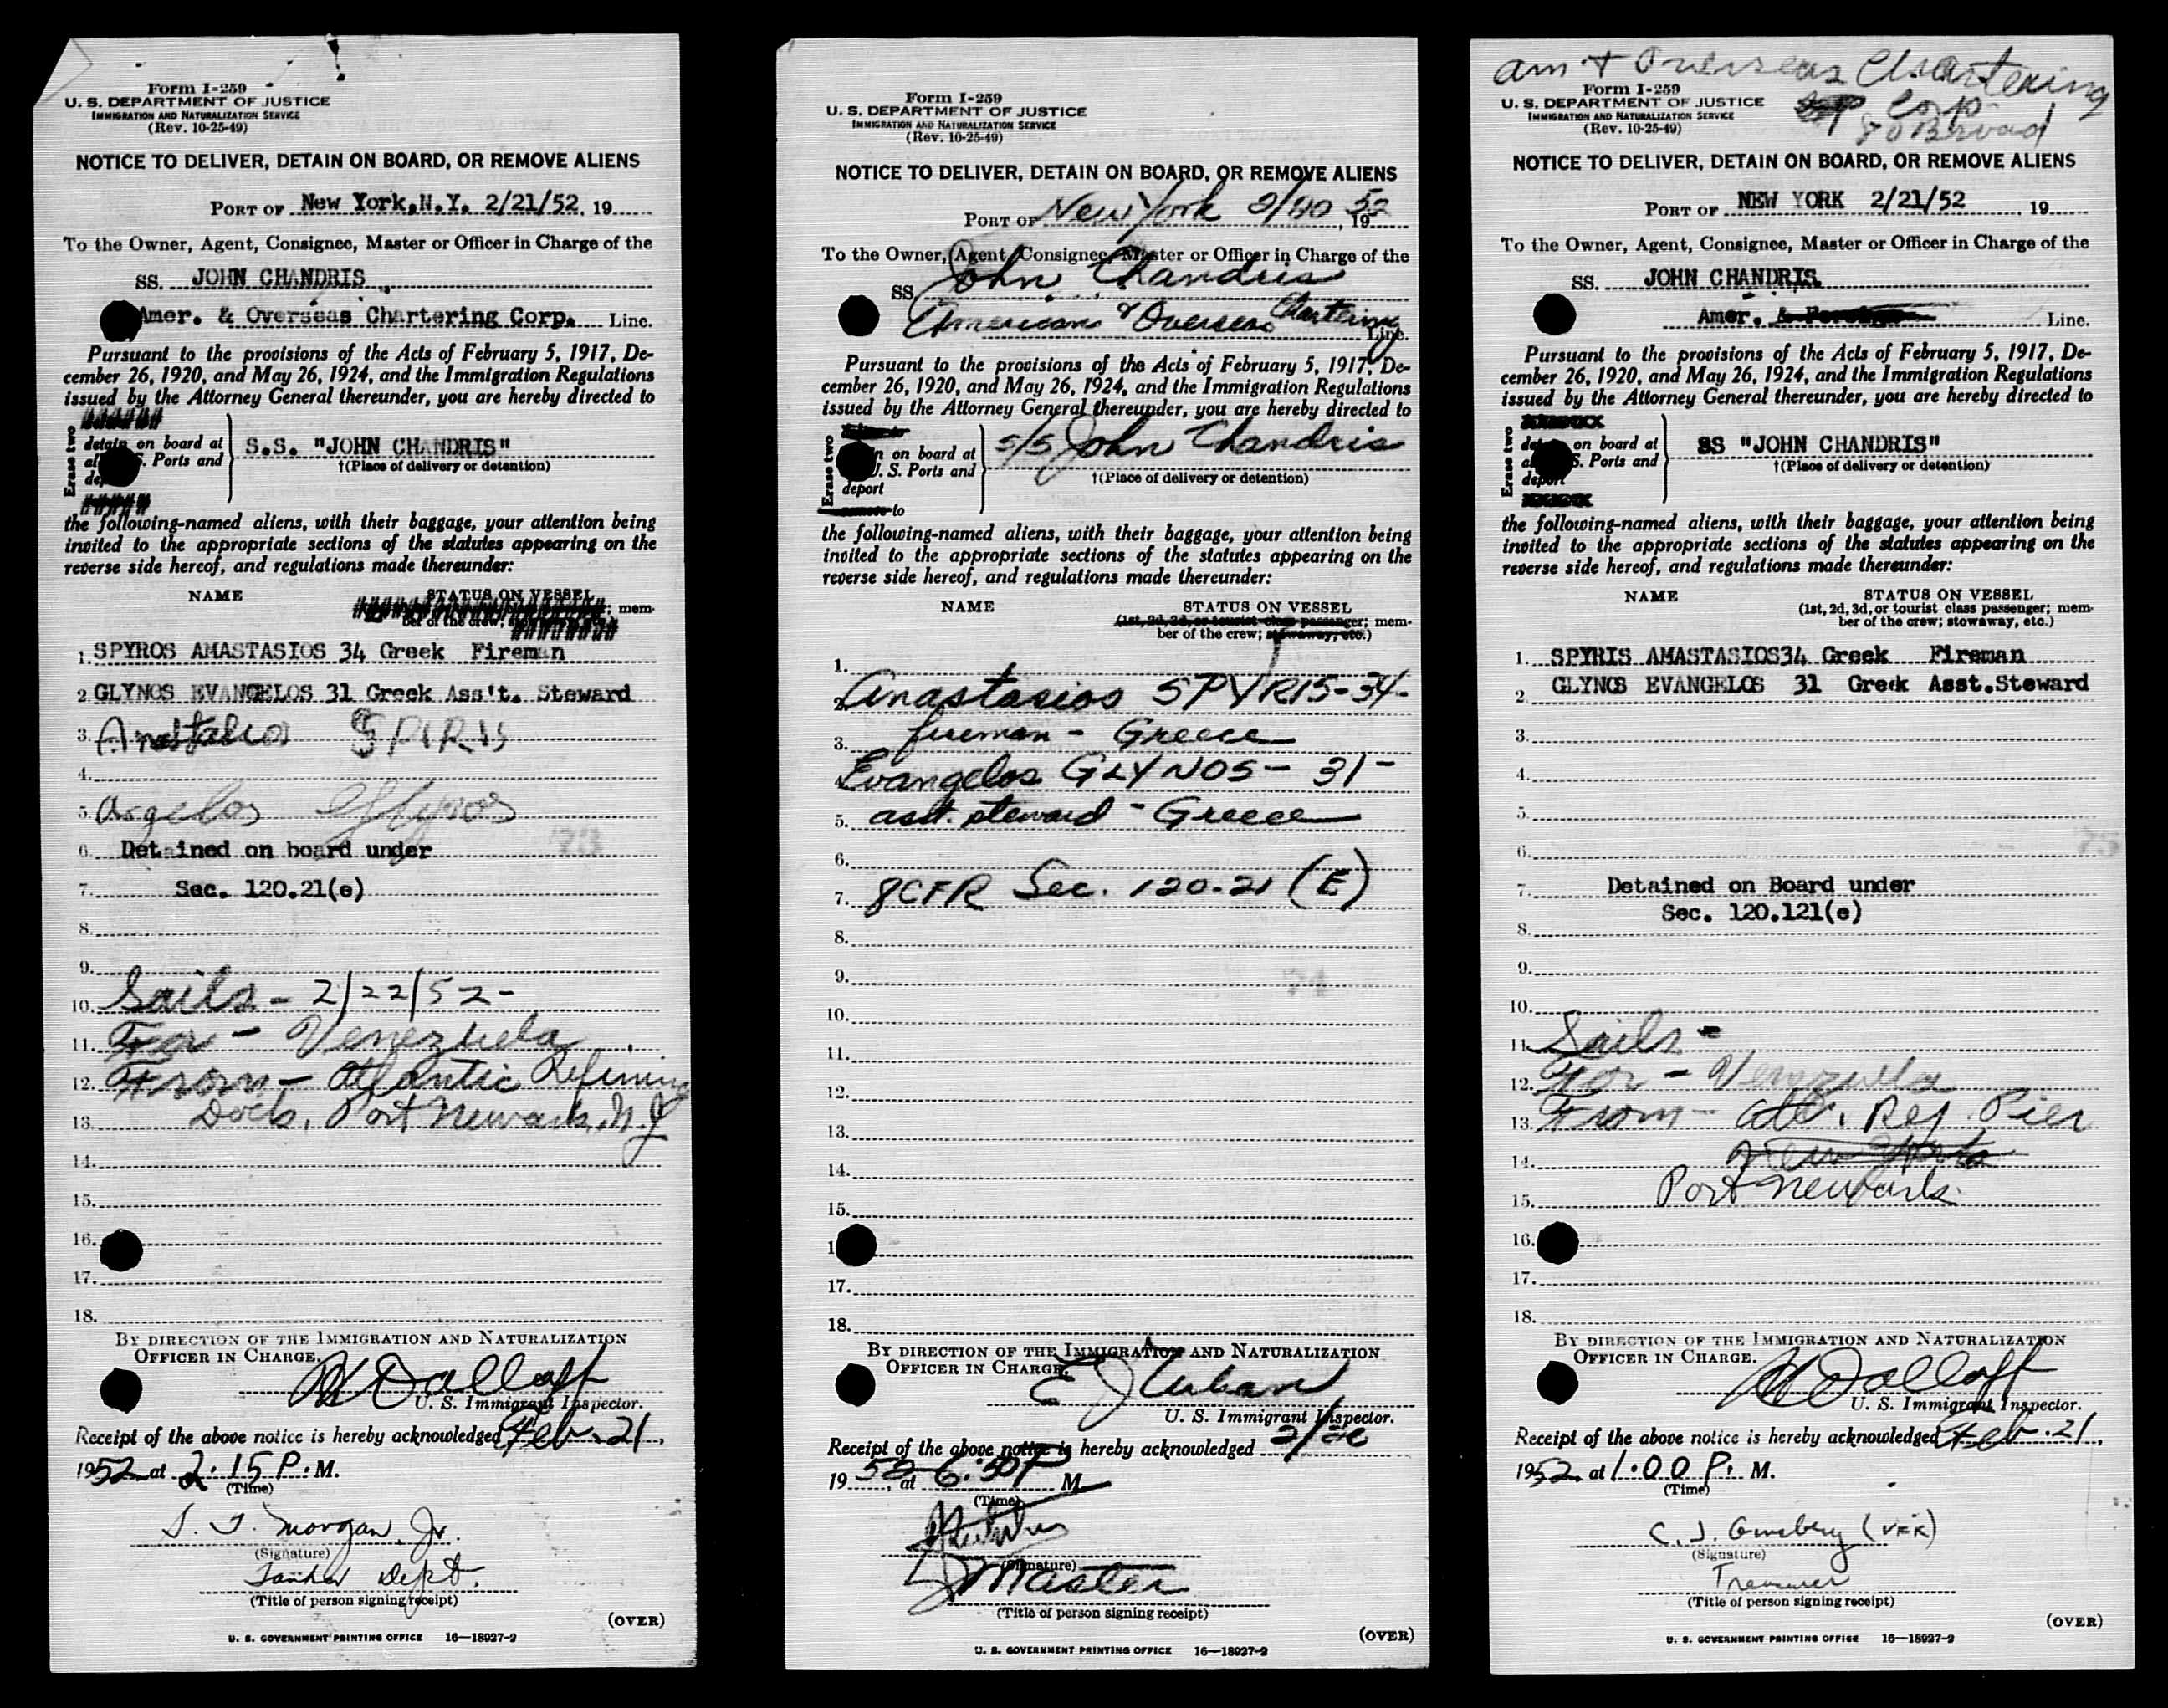 Form I-259
U. S. DEPARTMENT OF JUSTICE
IMMIGRATION AND NATURALIZATION SERVICE
(Rev. 10-25-49)
NOTICE TO DELIVER, DETAIN ON BOARD, OR REMOVE ALIENS
PORT OF New York, N.Y. 2/21/52, 19
To the Owner, Agent, Consignee, Master or Officer in Charge of the
SS. JOHN CHANDRIS
Amer. & Overseas Chartering Corp. Line.
Pursuant to the provisions of the Acts of February 5, 1917, De-
cember 26, 1920, and May 26, 1924, and the Immigration Regulations
issued by the Attorney General thereunder, you are hereby directed to
Erase two
detain on board at
S. Ports and
S.S. "JOHN CHANDRIS"
†(Place of delivery or detention)
the following-named aliens, with their baggage, your attention being
invited to the appropriate sections of the statutes appearing on the
reverse side hereof, and regulations made thereunder:
NAME STATUS ON VESSEL
mem-
ber of the crew;
1. SPYROS AMASTASIOS 34 Greek Fireman
2. GLYNOS EVANGELOS 31 Greek Ass't. Steward
3. SPIRIS
4.
5. Glynos
6. Detained on board under
7. Sec. 120.21(e)
8.
9.
10. Sails - 2/22/52 -
11. For - Venezuela
12. From - Atlantic Refining
13. Dock, Port Newark, N.J.
14.
15.
16.
17.
18.
BY DIRECTION OF THE IMMIGRATION AND NATURALIZATION
OFFICER IN CHARGE.
U. S. Immigrant Inspector.
Receipt of the above notice is hereby acknowledged Feb. 21,
1952 at 2:15 P. M.
(Time)
Morgan, Jr.
(Signature)
Tanker Dept.
(Title of person signing receipt)
(OVER)
U. S. GOVERNMENT PRINTING OFFICE 16—18927-2
Form I-259
U. S. DEPARTMENT OF JUSTICE
IMMIGRATION AND NATURALIZATION SERVICE
(Rev. 10-25-49)
NOTICE TO DELIVER, DETAIN ON BOARD, OR REMOVE ALIENS
PORT OF New York 2/20, 1952
To the Owner, Agent, Consignee, Master or Officer in Charge of the
SS John Chandris
American & Overseas Chartering Line.
Pursuant to the provisions of the Acts of February 5, 1917, De-
cember 26, 1920, and May 26, 1924, and the Immigration Regulations
issued by the Attorney General thereunder, you are hereby directed to
Erase two
on board at
U. S. Ports and
deport
remove to
S/S John Chandris
†(Place of delivery or detention)
the following-named aliens, with their baggage, your attention being
invited to the appropriate sections of the statutes appearing on the
reverse side hereof, and regulations made thereunder:
NAME STATUS ON VESSEL
(1st, 2d, 3d, or tourist class passenger; mem-
ber of the crew; stowaway, etc.)
1.
2. Anastasios SPYRIS-34-
3. fireman - Greece
4. Evangelos GLYNOS - 31 -
5. asst. steward - Greece
6.
7. 8CFR Sec. 120-21 (E)
8.
9.
10.
11.
12.
13.
14.
15.
1
17.
18.
BY DIRECTION OF THE IMMIGRATION AND NATURALIZATION
OFFICER IN CHARGE.
U. S. Immigrant Inspector.
Receipt of the above notice is hereby acknowledged 2/20
1952, at 6:30 P M.
(Time)
(Signature)
Master
(Title of person signing receipt)
(OVER)
U. S. GOVERNMENT PRINTING OFFICE 16—18927-2
Am + Overseas Chartering
Corp
80 Broad
Form I-259
U. S. DEPARTMENT OF JUSTICE
IMMIGRATION AND NATURALIZATION SERVICE
(Rev. 10-25-49)
NOTICE TO DELIVER, DETAIN ON BOARD, OR REMOVE ALIENS
PORT OF NEW YORK 2/21/52, 19
To the Owner, Agent, Consignee, Master or Officer in Charge of the
SS. JOHN CHANDRIS
Amer. Line.
Pursuant to the provisions of the Acts of February 5, 1917, De-
cember 26, 1920, and May 26, 1924, and the Immigration Regulations
issued by the Attorney General thereunder, you are hereby directed to
Erase two
on board at
S. Ports and
deport
SS "JOHN CHANDRIS"
†(Place of delivery or detention)
the following-named aliens, with their baggage, your attention being
invited to the appropriate sections of the statutes appearing on the
reverse side hereof, and regulations made thereunder:
NAME STATUS ON VESSEL
(1st, 2d, 3d, or tourist class passenger; mem-
ber of the crew; stowaway, etc.)
1. SPYRIS AMASTASIOS34 Greek Fireman
2. GLYNOS EVANGELOS 31 Greek Asst.Steward
3.
4.
5.
6.
7. Detained on Board under
Sec. 120.121(e)
8.
9.
10.
11. Sails -
12. For - Venezuela
13. From - Atl. Ref. Pier
14.
15. Port Newark
16.
17.
18.
BY DIRECTION OF THE IMMIGRATION AND NATURALIZATION
OFFICER IN CHARGE.
U. S. Immigrant Inspector.
Receipt of the above notice is hereby acknowledged Feb. 21,
1952 at 1:00 P. M.
(Time)
C. J. Ginsberg
(Signature)
Treasurer
(Title of person signing receipt)
(OVER)
U. S. GOVERNMENT PRINTING OFFICE 16—18927-2